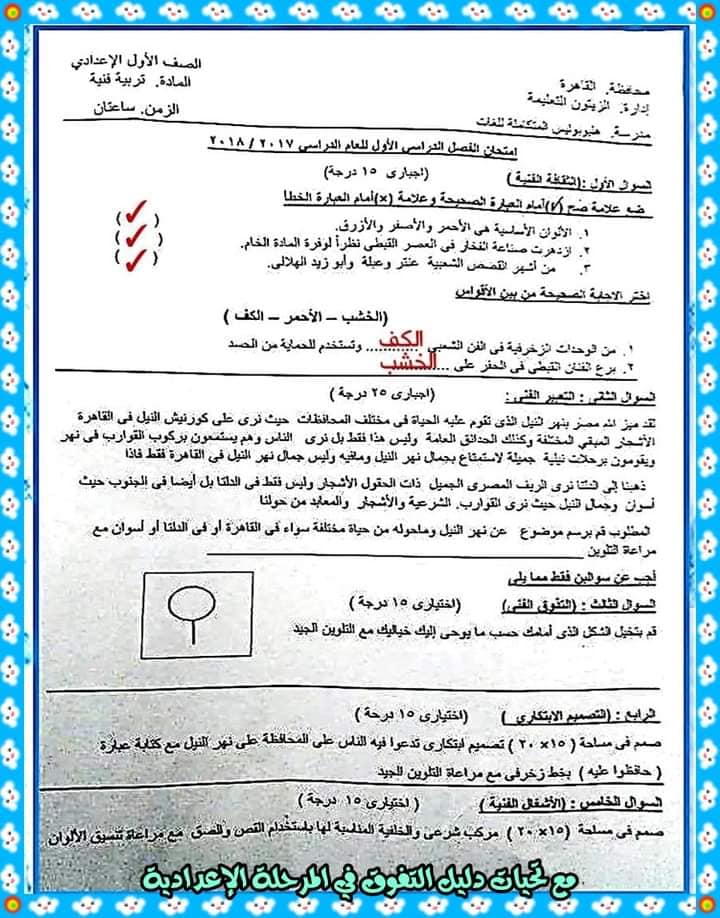 محافظة. القاهرة
إدارة. الزيتون التعليمة
مدرسة. هليوبوليس المتكاملة للغات
الصف الأول الإعدادي
المادة. تربية فنية
الزمن. ساعتان
امتحان الفصل الدراسي الأول للعام الدراسي ٢٠١٧ / ٢٠١٨
السوال الأول :(الثقافة الفنية ) (اجبارى ١٥ درجة)
ضع علامة صح (√)أمام العبارة الصحيحة وعلامة (×)أمام العبارة الخطأ
١. الألوان الأساسية هى الأحمر والأصفر والأزرق. (✓)
٢. ازدهرت صناعة الفخار فى العصر القبطي نظراً لوفرة المادة الخام. (✓)
٣. من أشهر القصص الشعبية عنتر وعبلة وأبو زيد الهلالى. (✓)
اختر الاجابة الصحيحة من بين الأقواس
(الخشب – الأحمر – الكف )
١. من الوحدات الزخرفية فى الفن الشعبي ...الكف... وتستخدم للحماية من الحسد
٢. برع الفنان القبطي فى الحفر على ...الخشب...
السوال الثانى : التعبير الفنى : (اجبارى ٢٥ درجة )
لقد ميز الله مصر بنهر النيل الذى تقوم عليه الحياة فى مختلف المحافظات حيث نرى على كورنيش النيل فى القاهرة
الأشجار المختلفة وكذلك الحدائق العامة وليس هذا فقط بل نرى الناس وهم يستمتعون بركوب القوارب فى نهر
ويقومون برحلات نيلية جميلة لاستمتاع بجمال نهر النيل ومافيه وليس جمال نهر النيل فى القاهرة فقط فاذا
ذهبنا إلى الدلتا نرى الريف المصرى الجميل ذات الحقول الأشجار وليس فقط فى الدلتا بل أيضا فى الجنوب حيث
أسوان وجمال النيل حيث نرى القوارب الشرعية والأشجار والمعابد من حولنا
المطلوب قم برسم موضوع عن نهر النيل وماحوله من حياة مختلفة سواء فى القاهرة أو فى الدلتا أو أسوان مع
مراعاة التلوين
أجب عن سوالين فقط مما يلى
السوال الثالث : (التفوق الفنى) (اختيارى ١٥ درجة )
قم بتخيل الشكل الذى أمامك حسب ما يوحى إليك خيالك مع التلوين الجيد
الرابع : (التصميم الابتكارى ) (اختيارى ١٥ درجة )
صمم فى مساحة ( ١٥× ٢٠ ) تصميم ابتكارى تدعوا فيه الناس على المحافظة على نهر النيل مع كتابة عبارة
( حافظوا عليه ) بخط زخرفى مع مراعاة التلوين الجيد
السوال الخامس : (الأشغال الفنية ) ( اختيارى ١٥ درجة )
صمم فى مساحة (١٥× ٢٠ ) مركب شرعى والخلفية المناسبة لها باستخدام القص والصق مع مراعاة تنسيق الألوان
مع تحيات دليل التفوق في المرحلة الإعدادية